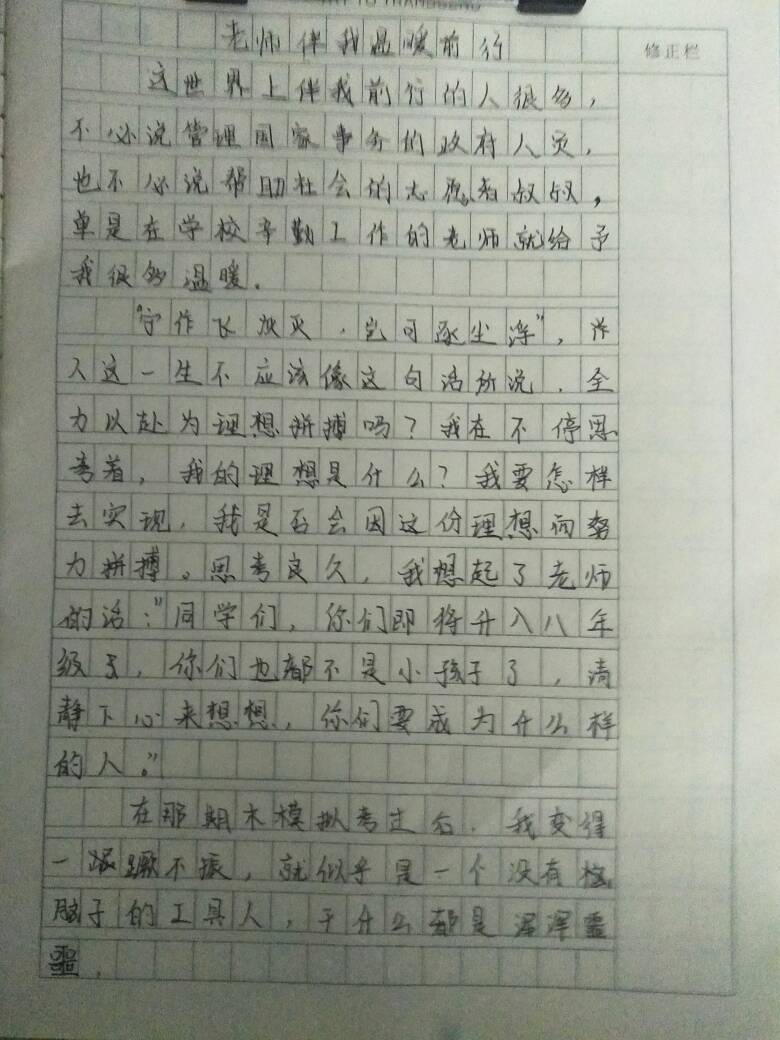 老师伴我温暖前行
修正栏
这世界上伴我前行的人很多，
不必说管理国家事务的政府人员，
也不必说帮助社会的志愿者叔叔，
单是在学校辛勤工作的老师就给予
我很多温暖。
“宁作飞灰灭，岂可逐尘浮”，许
人这一生不应该像这句话所说，全
力以赴为理想拼搏吗？我在不停思
考着，我的理想是什么？我要怎样
去实现，我是否会因这份理想而努
力拼搏。思考良久，我想起了老师
的话：“同学们，你们即将升入八年
级了，你们也都不是小孩子了，请
静下心来想想，你们要成为什么样
的人。”
在那期末模拟考过后，我变得
一蹶不振，就似乎是一个没有
脑子的工具人，干什么都是浑浑噩
噩，